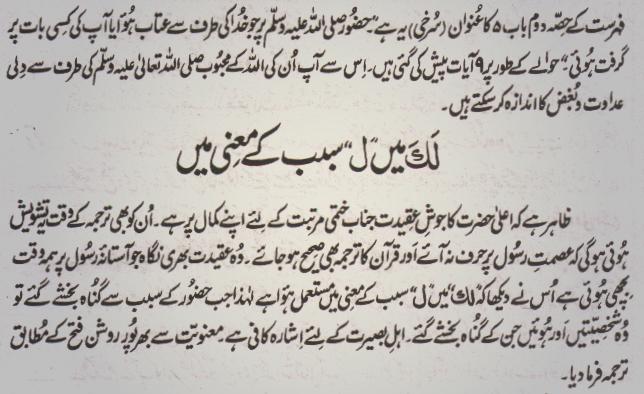 فہرست کے حصّہ دوم باب ۵ کا عُنوان (سُرخی) یہ ہے "حضُور صلی اللہ علیہ وسلّم پر جو خُدا کی طرف سے عتاب ہُوا یا آپ کی کسی بات پر
گرفت ہُوئی۔" حوالے کے طور پر ۹ آیات پیش کی گئی ہیں۔ اِس سے آپ اُن کی اللہ کے محبُوب صلی اللہ تعالیٰ علیہ وسلّم کی طرف سے دِلی
عداوت و بُغض کا اندازہ کر سکتے ہیں۔
لَکَ میں "ل" سبب کے معنٰی میں
ظاہر ہے کہ اعلیٰ حضرت کا جوشِ عقیدت جناب ختمی مرتبت کے لئے اپنے کمال پر ہے۔ اُن کو بھی ترجمہ کے وقت یہ تشویش
ہُوئی ہو گی کہ عصمتِ رسُول پر حرف نہ آئے اَور قُرآن کا ترجمہ بھی صحیح ہو جائے۔ وُہ عقیدت بھری نگاہ جو آستانۂ رسُول پر ہمہ وقت
بچھی ہُوئی ہے اُس نے دیکھا کہ "لَکَ" میں "ل" سبب کے معنٰی میں مستعمل ہُوا ہے لہٰذا جب حضُور کے سبب سے گُناہ بخشے گئے تو
وُہ شخصیّتیں اَور ہُوئیں جن کے گُناہ بخشے گئے۔ اہلِ بصیرت کے لئے اِشارہ کافی ہے۔ معنویّت سے بھرپُور روشن فتح کے مُطابق
ترجمہ فرما دیا۔